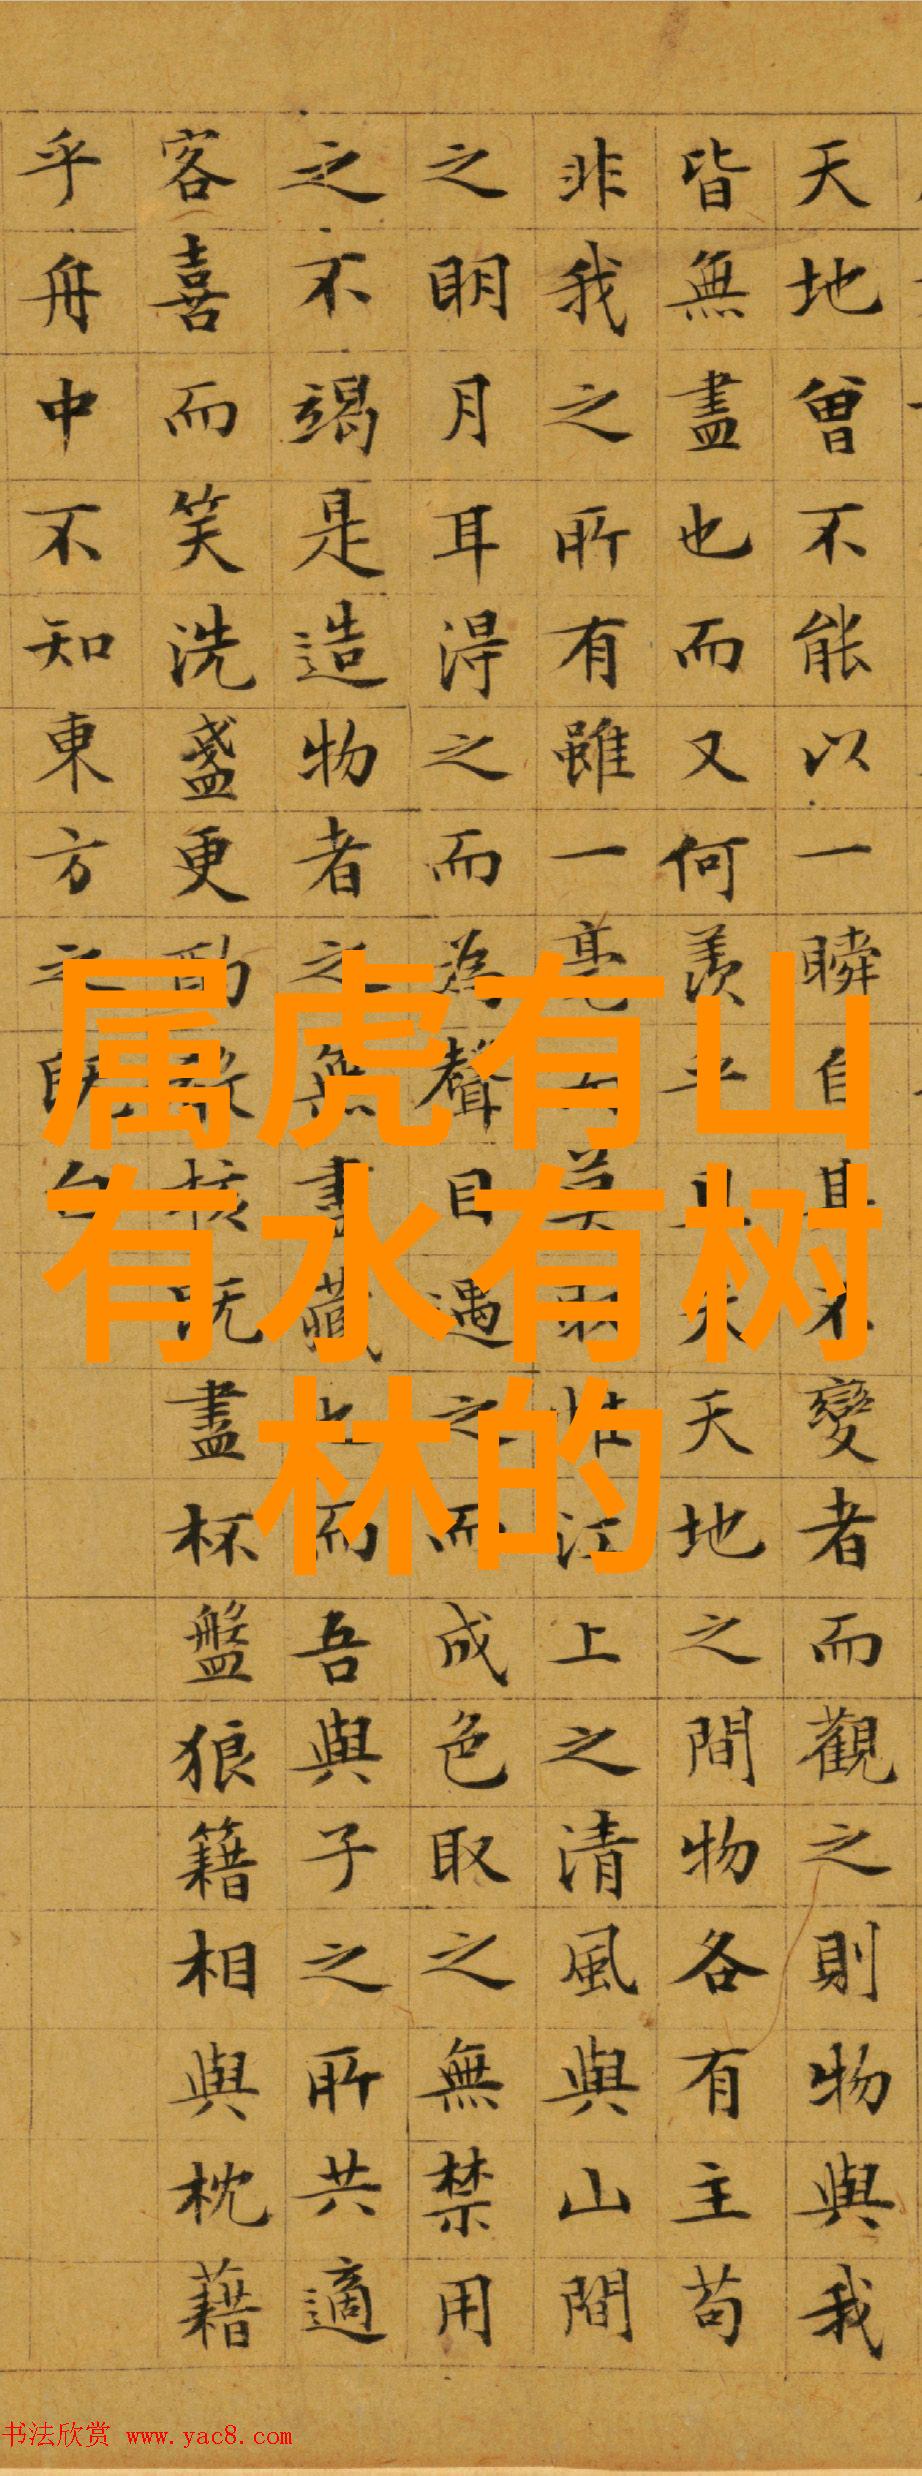 天地曾不能以一瞬自其不變者而觀之則物與我
皆無盡也而又何羨乎且夫天地之間物各有主苟
非我之所有雖一毫而莫取惟江上之清風與山間
之眀月耳得之而為聲目遇之而成色取之無禁用
之不竭是造物者之無盡藏也而吾與子之所共適
客喜而笑洗盞更酌肴核既盡杯盤狼籍相與枕藉
乎舟中不知東方之既白
属虎有山
有水有树
林的
书法欣赏 www.yac8.com